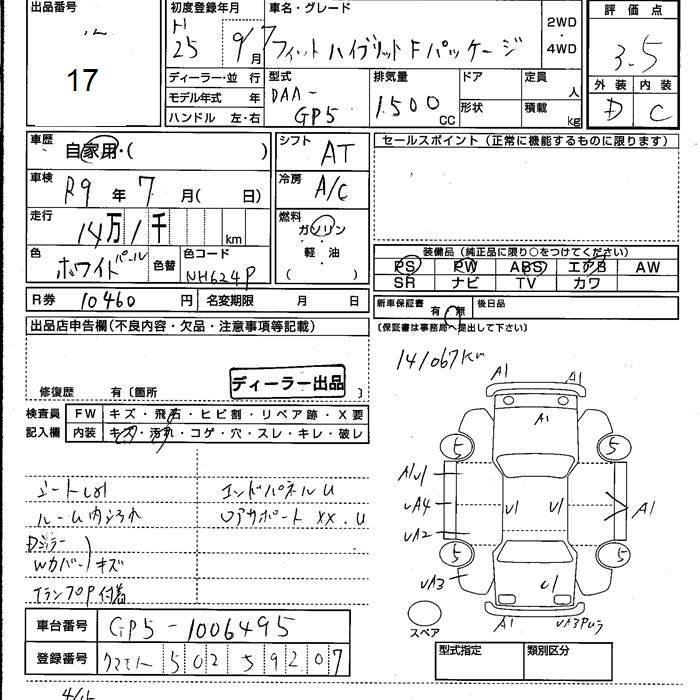 出品番号
17
初度登録年月
H 25 年 9/7 月
車名・グレード
フィット ハイブリット Fパッケージ
2WD・4WD
評価点
3.5
外装 内装
D C
ディーラー・並行
モデル年式 年
ハンドル 左・右
型式
DAA-
GP5
排気量
1.500 CC
ドア
形状
定員 人
積載 kg
車歴 自家用・( )
車検 R9 年 7 月( 日)
走行 14万 1千 km
色 ホワイトパール 色替
色コード NH624P
シフト AT
冷房 A/C
燃料 ガソリン
軽油
( )
セールスポイント(正常に機能するものに限ります)
装備品(純正品に限り○をつけてください)
PS PW ABS エアB AW
SR ナビ TV カワ
R券 10460 円 名変期限 月 日
新車保証書 有 無 後日品
(保証書は事務局へ提出して下さい)
出品店申告欄(不良内容・欠品・注意事項等記載)
ディーラー出品
修復歴 有〔箇所 〕
検査員記入欄
FW キズ・飛石・ヒビ割・リペア跡・X要
内装 キズ・汚れ・コゲ・穴・スレ・キレ・破レ
ルーム内
エンドパネルU
XX.U
Wカバー キズ
141067km
A1 A1
A1
5 5
A1U1
UA4 U1 U1 A1
UA2
5 5
UA3 U1
A1 UA3
スペア
車台番号 GP5-1006495
登録番号 クマモト 502 59207
型式指定 類別区分